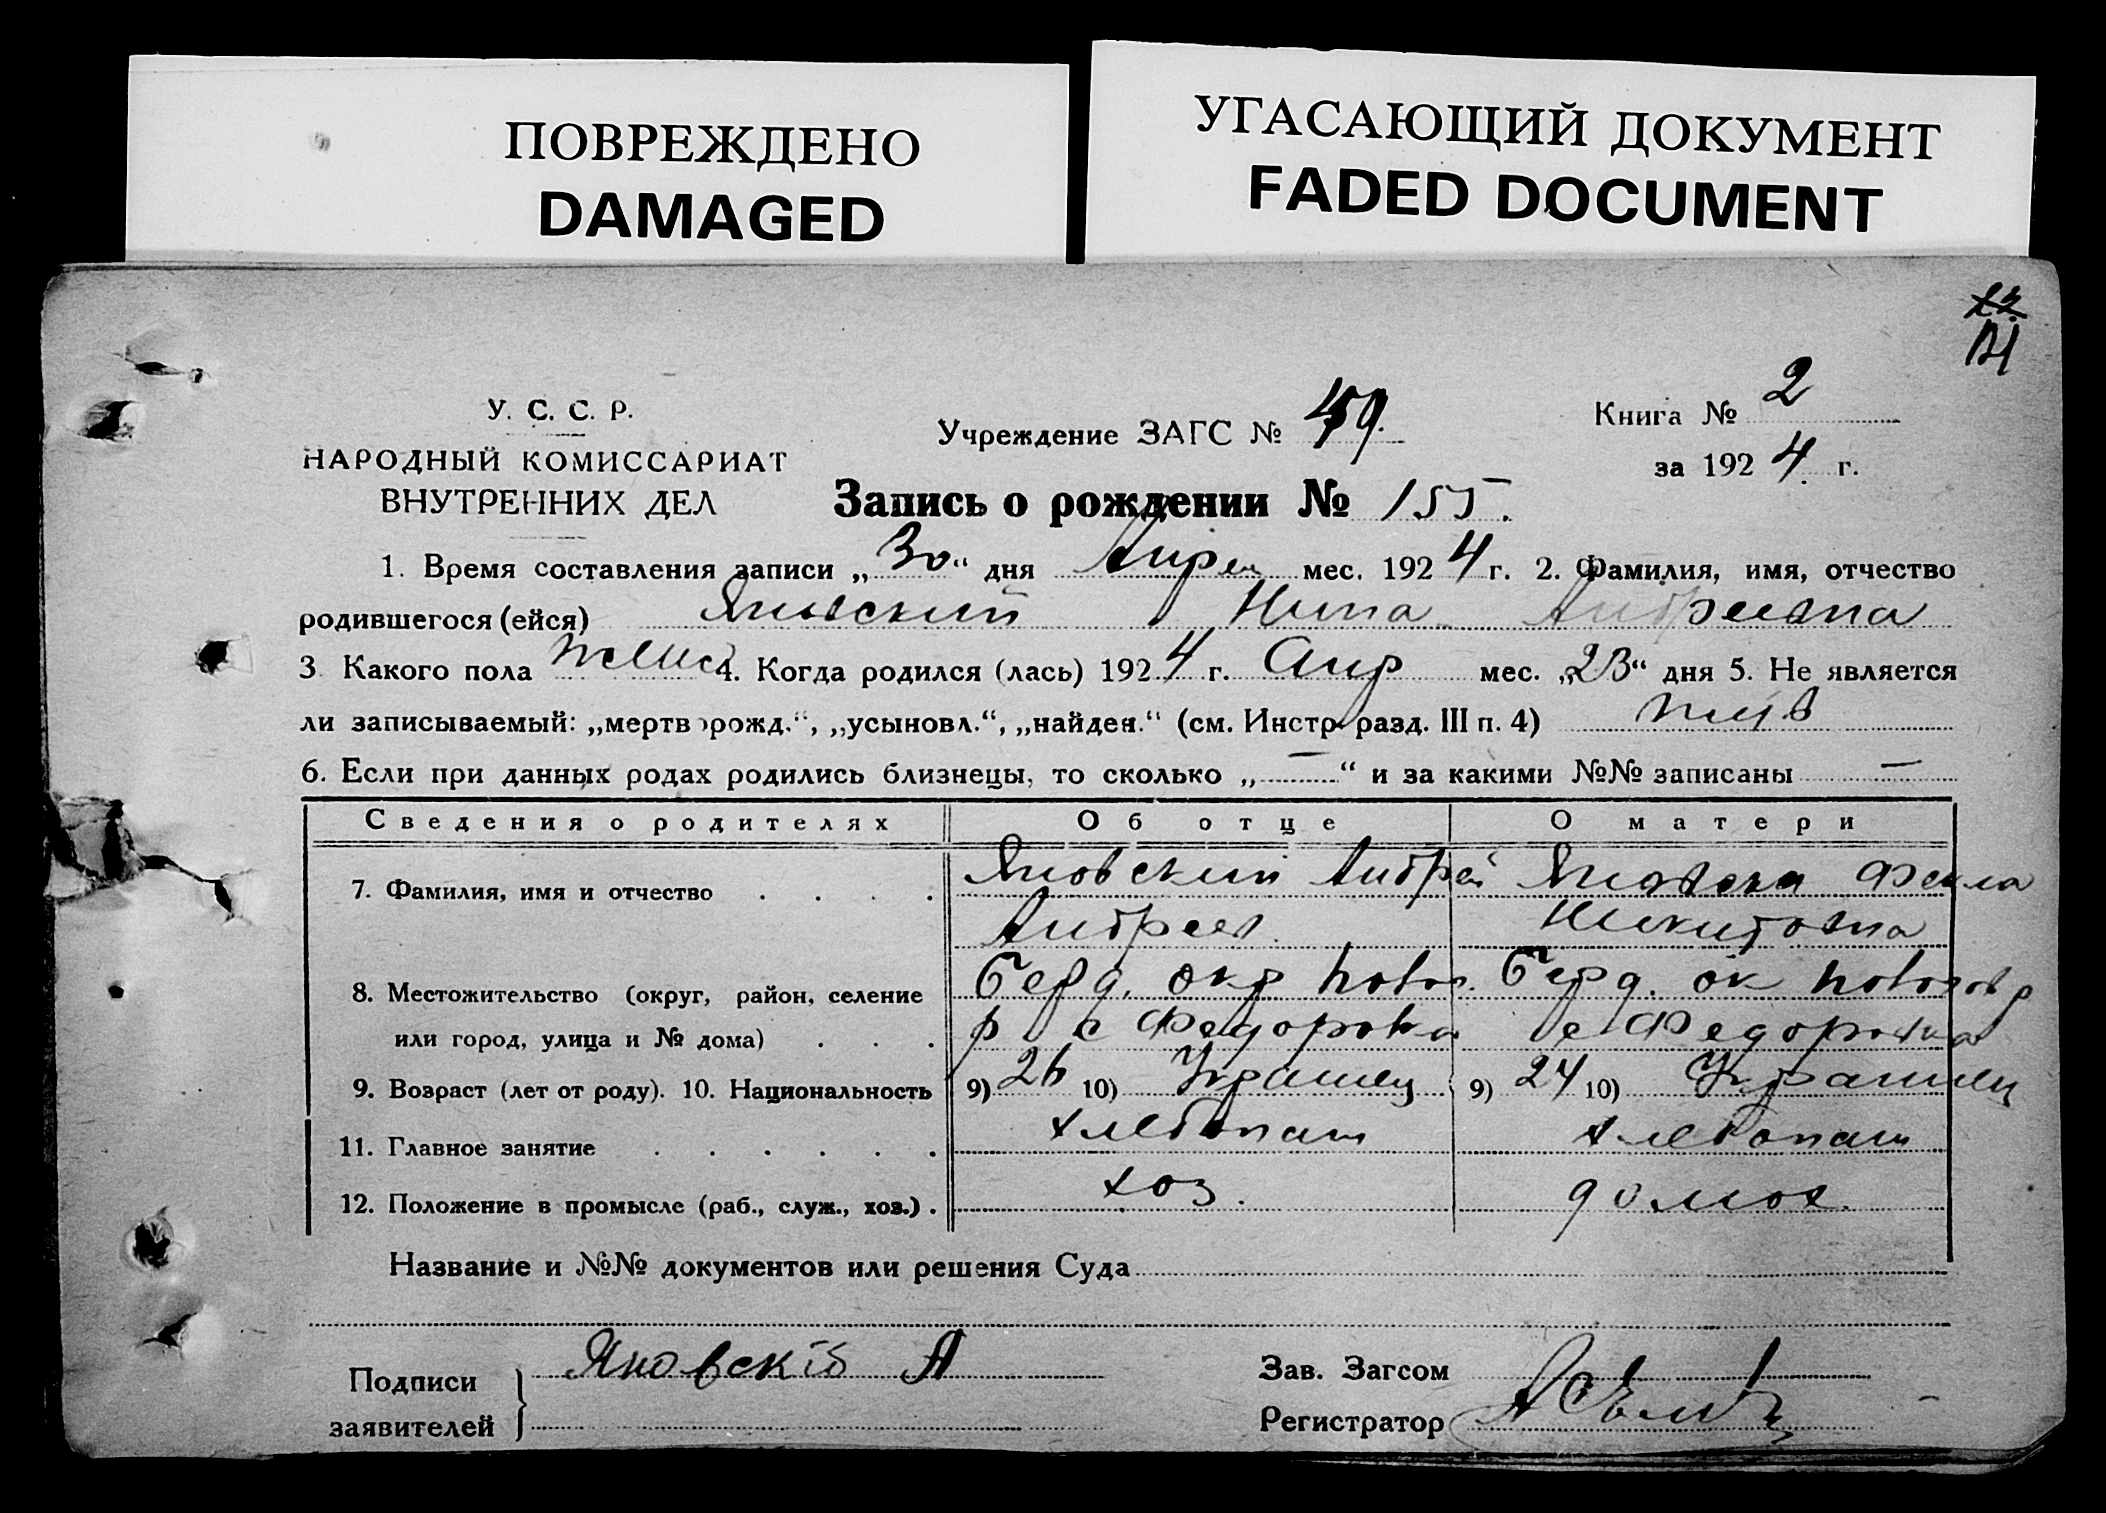 ПОВРЕЖДЕНО
DAMAGED
УГАСАЮЩИЙ ДОКУМЕНТ
FADED DOCUMENT
У. С. С. Р.
НАРОДНЫЙ КОМИССАРИАТ
ВНУТРЕННИХ ДЕЛ
Учреждение ЗАГС №
Книга № 2
за 1924 г.
Запись о рождении № 155.
1. Время составления записи „30“ дня Апрел мес. 1924 г. 2. Фамилия, имя, отчество
родившегося (ейся) Яновский Нина Андреевна
3. Какого пола женс 4. Когда родился (лась) 1924 г. Апр мес. „23“ дня 5. Не является
ли записываемый: „мертворожд.“, „усыновл.“, „найден.“ (см. Инстр. разд. III п. 4)
6. Если при данных родах родились близнецы, то сколько „—“ и за какими №№ записаны —
Сведения о родителях Об отце О матери
7. Фамилия, имя и отчество . . . . Яновский Андрей Яновска Фекла
Андреев. Никитовна
8. Местожительство (округ, район, селение Берд. окр Новос. Берд. ок Р
или город, улица и № дома) . . . р с Федоровка с Федоровка
9. Возраст (лет от роду). 10. Национальность 9) 26 10) Украинец 9) 24 10) Украинец
11. Главное занятие . . . . . . хлебопаш хлебопаш
12. Положение в промысле (раб., служ., хоз.) . хоз. домох.
Название и №№ документов или решения Суда
Подписи
заявителей
Яновскій А
Зав. Загсом
Регистратор